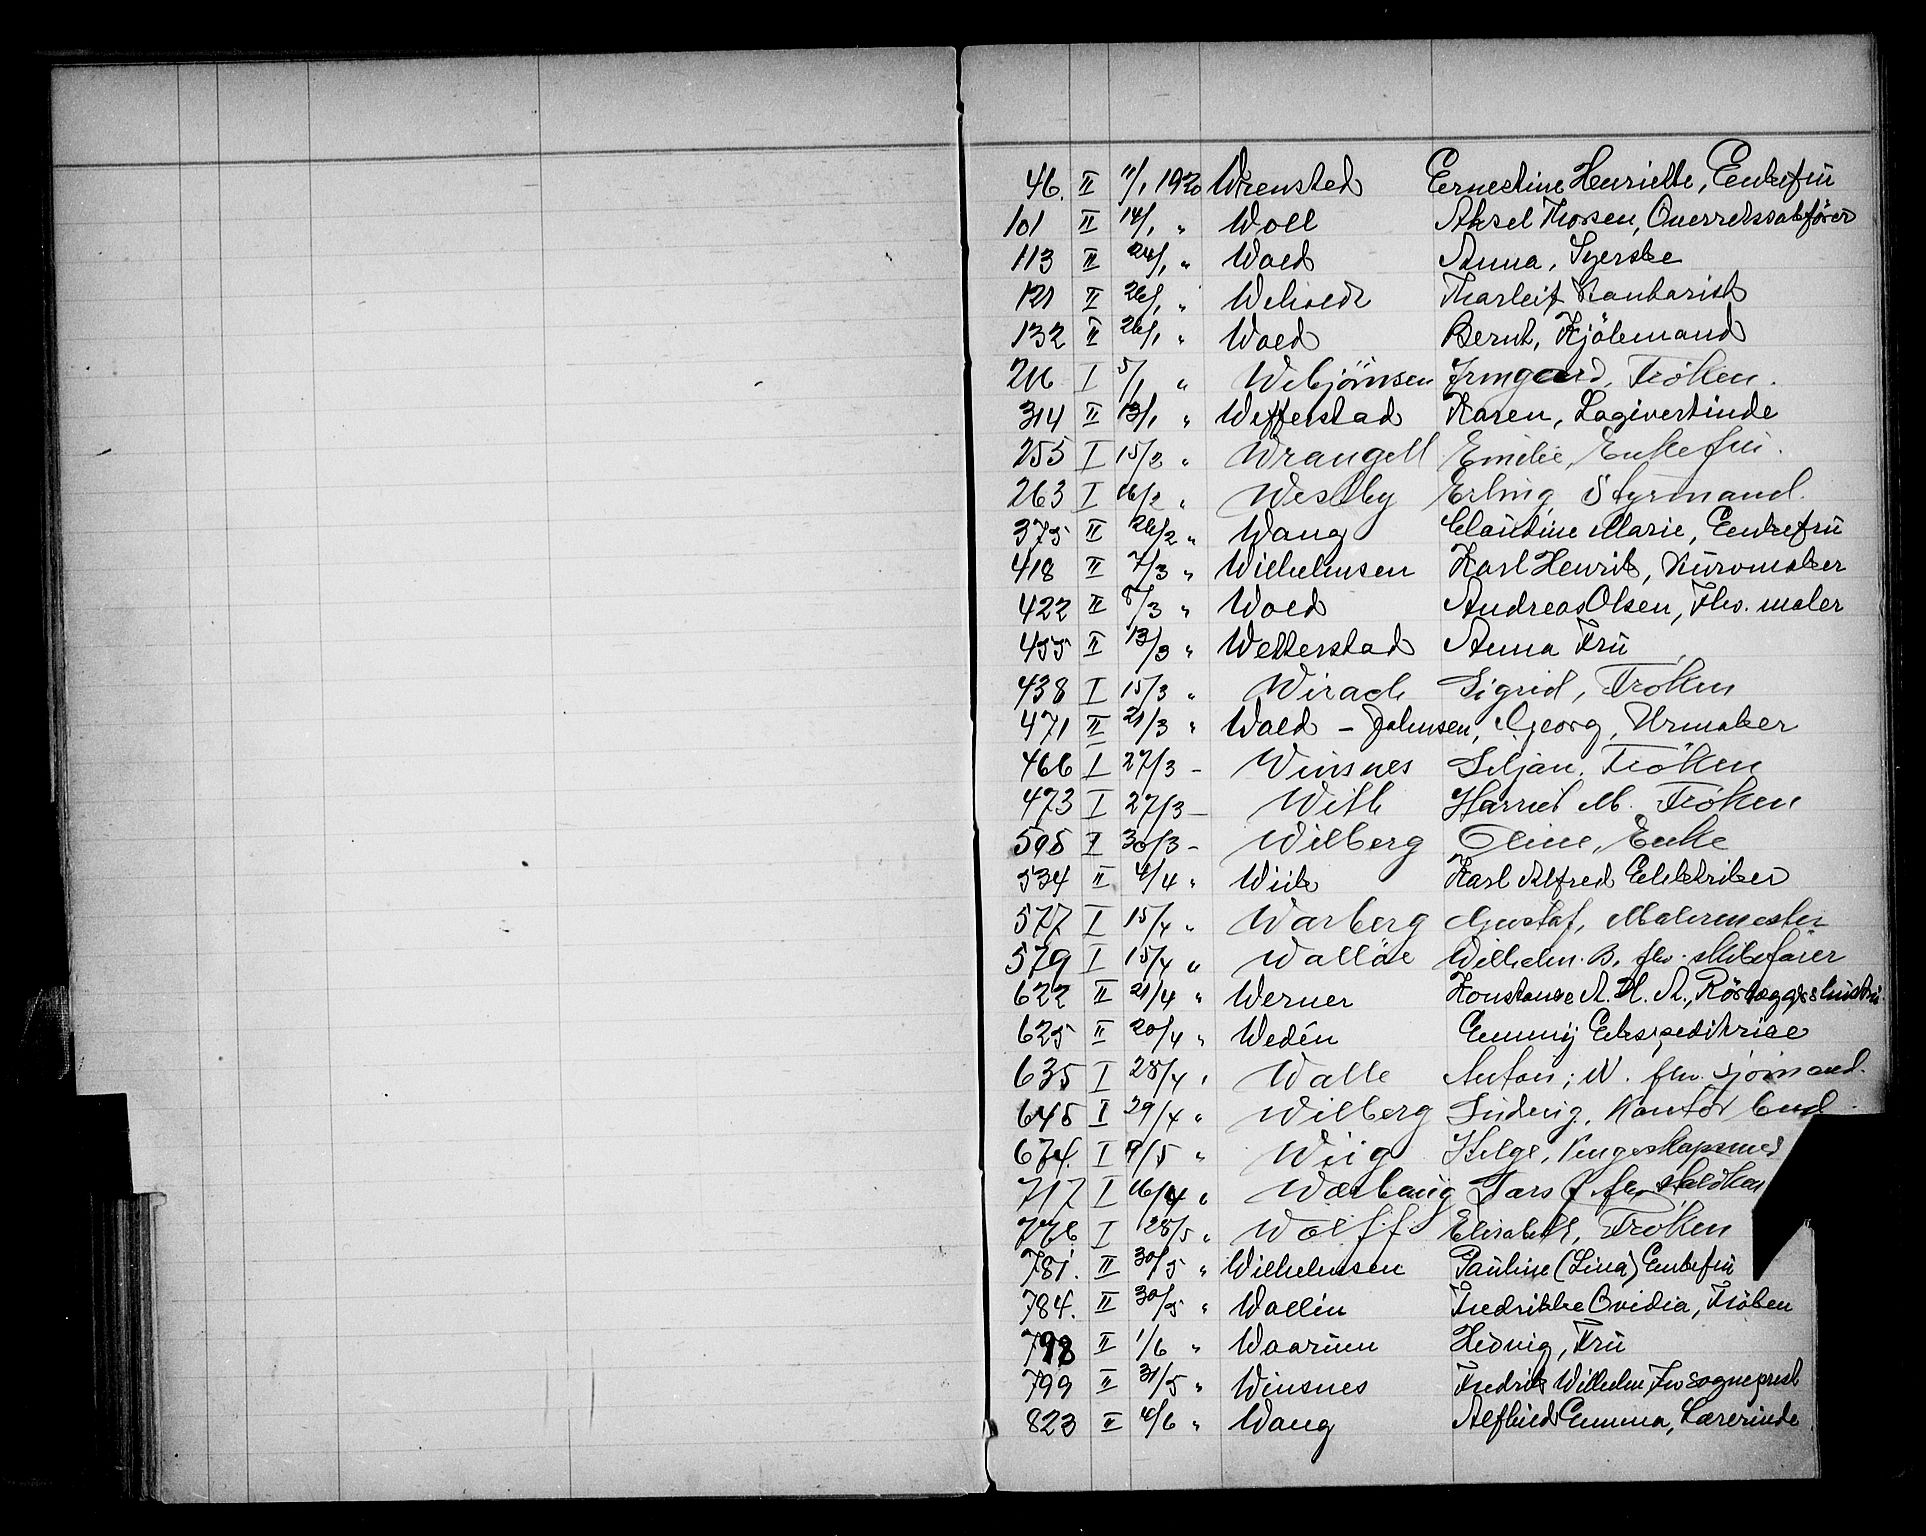 46. II 11/1 1920 Wrensted Ernestine Henriette, Enkefrü
101 II 14/1 " Woll Aksel Thorsen, Overretssakfører
113 II 24/1 " Wold Anna, Syerske
121 II 26/1 " Thorleif Kontorist
132 II 26/1 " Wold Bernt, Kjøbmand
216 I 5/1 " Webjörnsen Irmgard, Frøken.
314 II 13/1 " Wefferstad Karen, Logivertinde
255 I 15/2 " Wrangell Emilie, Enkefrü.
263 I 16/2 " Westby Erling, Styrmand.
375 II 26/2 " Wang Claudine Marie, Enkefrü
418 II Wilhelmsen Karl Henrik,
7/3 "
422 II 8/3 " Wold Andreas Olsen, Fhv. maler
455 II 13/3 " Wetterstad Anna Frü
438 I 15/3 " Sigrid, Frøken
471 II 21/3 " Wold - Johnsen, Georg, Urmaker
466 I 27/3 - Winsnes Siljan. Frøken
473 I 27/3 - With Harriet M. Frøken
598 I 30/3 - Wilberg Oline, Enke
534 II 4/4 " Wiik Karl Alfred Elektriker
577 I 15/4 " Warberg Gustaf, Malermester
579 I 15/4 " Walløe Wilhelm. B. fhv. skibsfører
622 II 21/4 " Werner Konstanse A. H. A., Rørlæggershustrü
625 II 20/4 " Wedén Emmy Ekspeditrise
635 I 28/4 " Walle Anton; N. fhv. Sjømand.
645 I 29/4 " Wilberg Ludvig, Kontorbud.
674. I 9/5 " Wiig Helge,
717 I 16/4 " Lars J. fhv.
776 I 28/5 " Wolff Elisabeth, Frøken
781. II 30/5 " Wilhelmsen Pauline (Lina) Enkefrü
784. II 30/5 " Wallin Fredrikke Ovidia, Frøken
798 II 1/6 " Waarüm Hedvig, Frü
799 II 31/5 " Winsnes Fredrik Wilhelm Fhv sogneprest
823 II 4/6 " Wang Alfhild Emma, Lærerinde